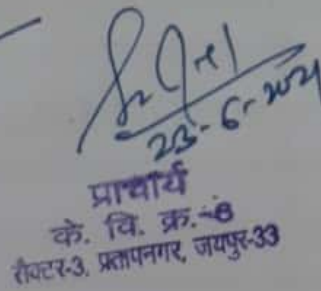 23-6-2021
प्राचार्य
के. वि. क्र.-6
सैक्टर-3, प्रतापनगर, जयपुर-33